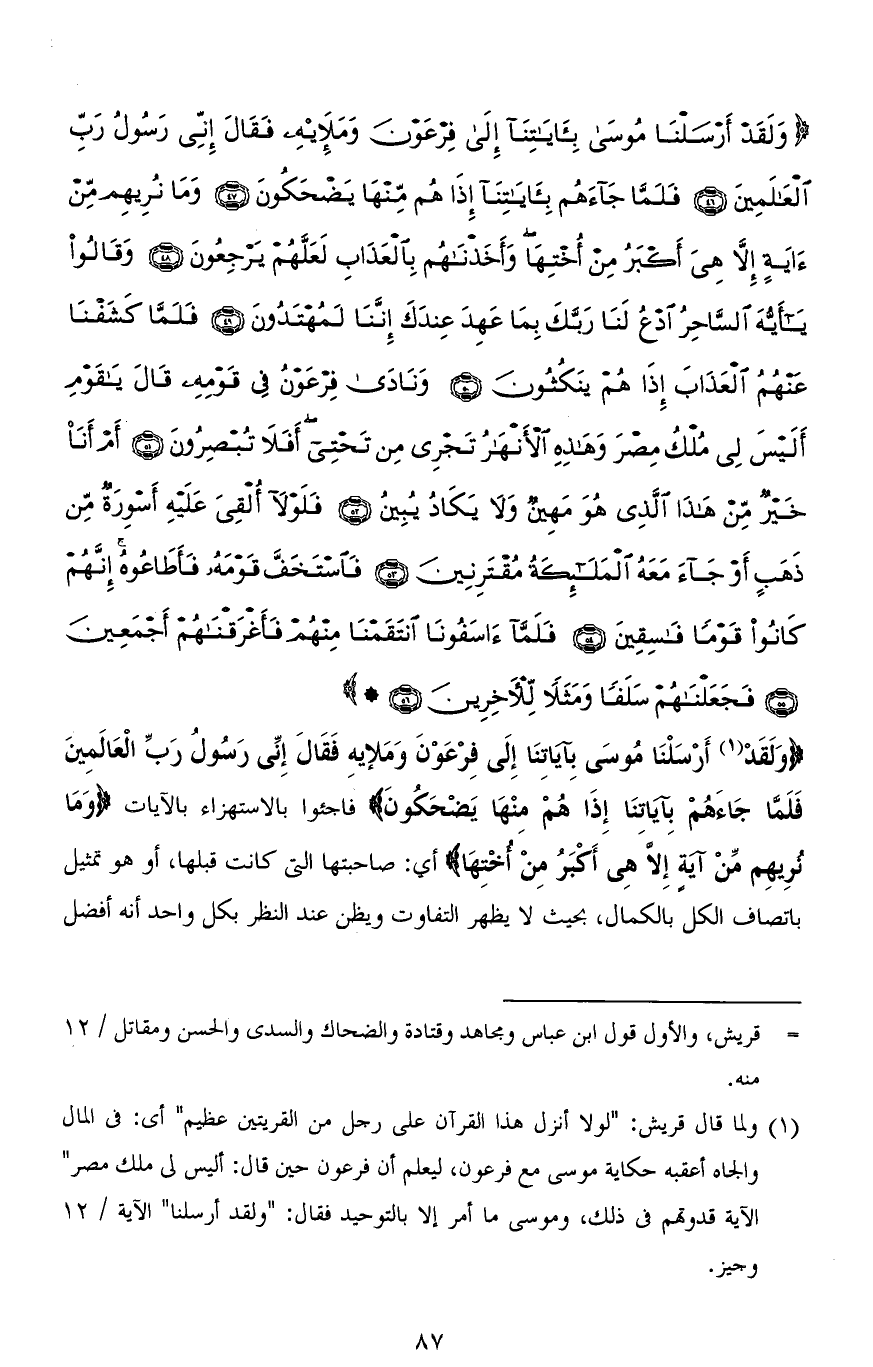 ﴿ وَلَقَدْ أَرْسَلْنَا مُوسَىٰ بِـَٔايَٰتِنَآ إِلَىٰ فِرْعَوْنَ وَمَلَإِيْهِۦ فَقَالَ إِنِّى رَسُولُ رَبِّ
ٱلْعَٰلَمِينَ ٤٦ فَلَمَّا جَآءَهُم بِـَٔايَٰتِنَآ إِذَا هُم مِّنْهَا يَضْحَكُونَ ٤٧ وَمَا نُرِيهِم مِّنْ
ءَايَةٍ إِلَّا هِىَ أَكْبَرُ مِنْ أُخْتِهَا ۖ وَأَخَذْنَٰهُم بِٱلْعَذَابِ لَعَلَّهُمْ يَرْجِعُونَ ٤٨ وَقَالُوا۟
يَٰٓأَيُّهَ ٱلسَّاحِرُ ٱدْعُ لَنَا رَبَّكَ بِمَا عَهِدَ عِندَكَ إِنَّنَا لَمُهْتَدُونَ ٤٩ فَلَمَّا كَشَفْنَا
عَنْهُمُ ٱلْعَذَابَ إِذَا هُمْ يَنكُثُونَ ٥٠ وَنَادَىٰ فِرْعَوْنُ فِى قَوْمِهِۦ قَالَ يَٰقَوْمِ
أَلَيْسَ لِى مُلْكُ مِصْرَ وَهَٰذِهِ ٱلْأَنْهَٰرُ تَجْرِى مِن تَحْتِىٓ ۖ أَفَلَا تُبْصِرُونَ ٥١ أَمْ أَنَا۠
خَيْرٌ مِّنْ هَٰذَا ٱلَّذِى هُوَ مَهِينٌ وَلَا يَكَادُ يُبِينُ ٥٢ فَلَوْلَآ أُلْقِىَ عَلَيْهِ أَسْوِرَةٌ مِّن
ذَهَبٍ أَوْ جَآءَ مَعَهُ ٱلْمَلَٰٓئِكَةُ مُقْتَرِنِينَ ٥٣ فَٱسْتَخَفَّ قَوْمَهُۥ فَأَطَاعُوهُ ۚ إِنَّهُمْ
كَانُوا۟ قَوْمًا فَٰسِقِينَ ٥٤ فَلَمَّآ ءَاسَفُونَا ٱنتَقَمْنَا مِنْهُمْ فَأَغْرَقْنَٰهُمْ أَجْمَعِينَ
٥٥ فَجَعَلْنَٰهُمْ سَلَفًا وَمَثَلًا لِّلْـَٔاخِرِينَ ٥٦ * ﴾
﴿وَلَقَدْ(١) أَرْسَلْنَا مُوسَى بِآيَاتِنَا إِلَى فِرْعَوْنَ وَمَلإيهِ فَقَالَ إِنِّى رَسُولُ رَبِّ الْعَالَمِينَ
فَلَمَّا جَاءَهُمْ بِآيَاتِنَا إِذَا هُمْ مِنْهَا يَضْحَكُونَ﴾ فاجئوا بالاستهزاء بالآيات ﴿وَمَا
نُرِيهِم مِّنْ آيَةٍ إِلاَّ هِى أَكْبَرُ مِنْ أُخْتِهَا﴾ أي: صاحبتها التى كانت قبلها، أو هو تمثيل
باتصاف الكل بالكمال، بحيث لا يظهر التفاوت ويظن عند النظر بكل واحد أنه أفضل
= قريش، والأول قول ابن عباس ومجاهد وقتادة والضحاك والسدى والحسن ومقاتل / ١٢
منه.
(١) ولما قال قريش: "لولا أنزل هذا القرآن على رجل من القريتين عظيم" أى: فى المال
والجاه أعقبه حكاية موسى مع فرعون، ليعلم أن فرعون حين قال: أليس لى ملك مصر"
الآية قدوتهم فى ذلك، وموسى ما أمر إلا بالتوحيد فقال: "ولقد أرسلنا" الآية / ١٢
وجيز.
٨٧